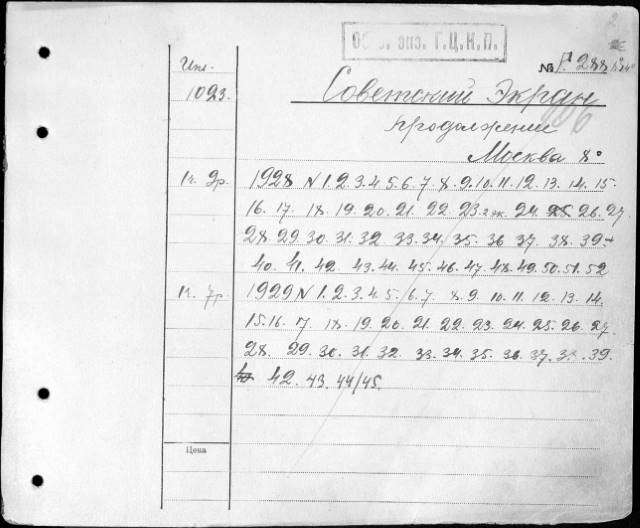 Обяз. экз. Г.Ц.К.П.
Инв.
1023.
№ Г. 288
Советский Экран
продолжение
Москва 8°
1928 N 1.2.3.4.5.6.7.8.9.10.11.12.13.14.15.
16.17.18.19.20.21.22.23.2 эк.24.25.26.27
28.29.30.31.32.33.34.35.36.37.38.39+
40.41.42.43.44.45.46.47.48.49.50.51.52
1929 N 1.2.3.4.5.6.7.8.9.10.11.12.13.14.
15.16.17.18.19.20.21.22.23.24.25.26.27.
28.29.30.31.32.33.34.35.36.37.38.39.
42.43.44/45.
Цена